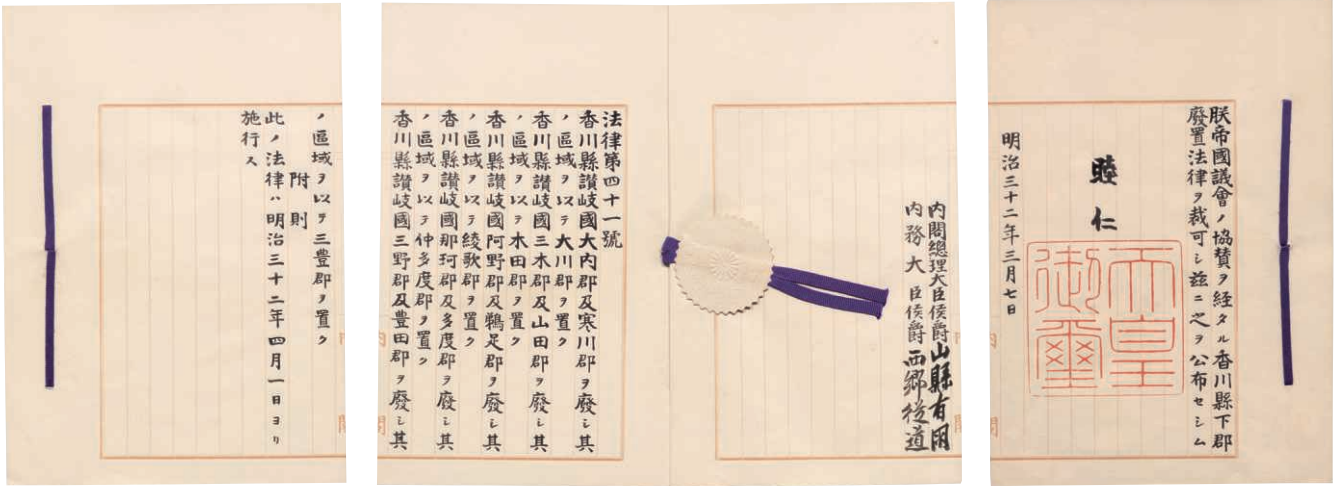 朕帝國議會ノ協賛ヲ経タル香川縣下郡
廢置法律ヲ裁可シ茲ニ之ヲ公布セシム
睦仁
天皇
御璽
明治三十二年三月七日
内閣總理大臣侯爵山縣有朋
内務大臣侯爵西郷従道
法律第四十一號
香川縣讃岐國大内郡及寒川郡ヲ廢シ其
ノ區域ヲ以テ大川郡ヲ置ク
香川縣讃岐國三木郡及山田郡ヲ廢シ其
ノ區域ヲ以テ木田郡ヲ置ク
香川縣讃岐國阿野郡及鵜足郡ヲ廢シ其
ノ區域ヲ以テ綾歌郡ヲ置ク
香川縣讃岐國那珂郡及多度郡ヲ廢シ其
ノ區域ヲ以テ仲多度郡ヲ置ク
香川縣讃岐國三野郡及豊田郡ヲ廢シ其
ノ區域ヲ以テ三豊郡ヲ置ク
附則
此ノ法律ハ明治三十二年四月一日ヨリ
施行ス